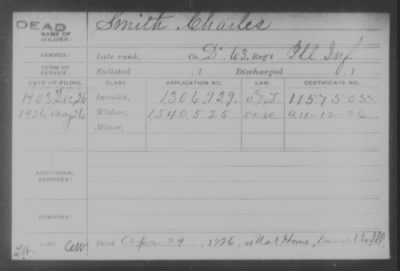 DEAD
NAME OF SOLDIER:
Smith, Charles
SERVICE:
Late rank, Co. D, 63, Reg't Ill Inf
TERM OF SERVICE:
Enlisted , 1 Discharged , 1
DATE OF FILING. CLASS. APPLICATION NO. LAW. CERTIFICATE NO.
1903 Dec 26 Invalid, 1306,929
1926 May 26 Widow, 1540,525
Minor,
ADDITIONAL SERVICES:
REMARKS:
CW Died Apr 29, 1926, at Nat Home,